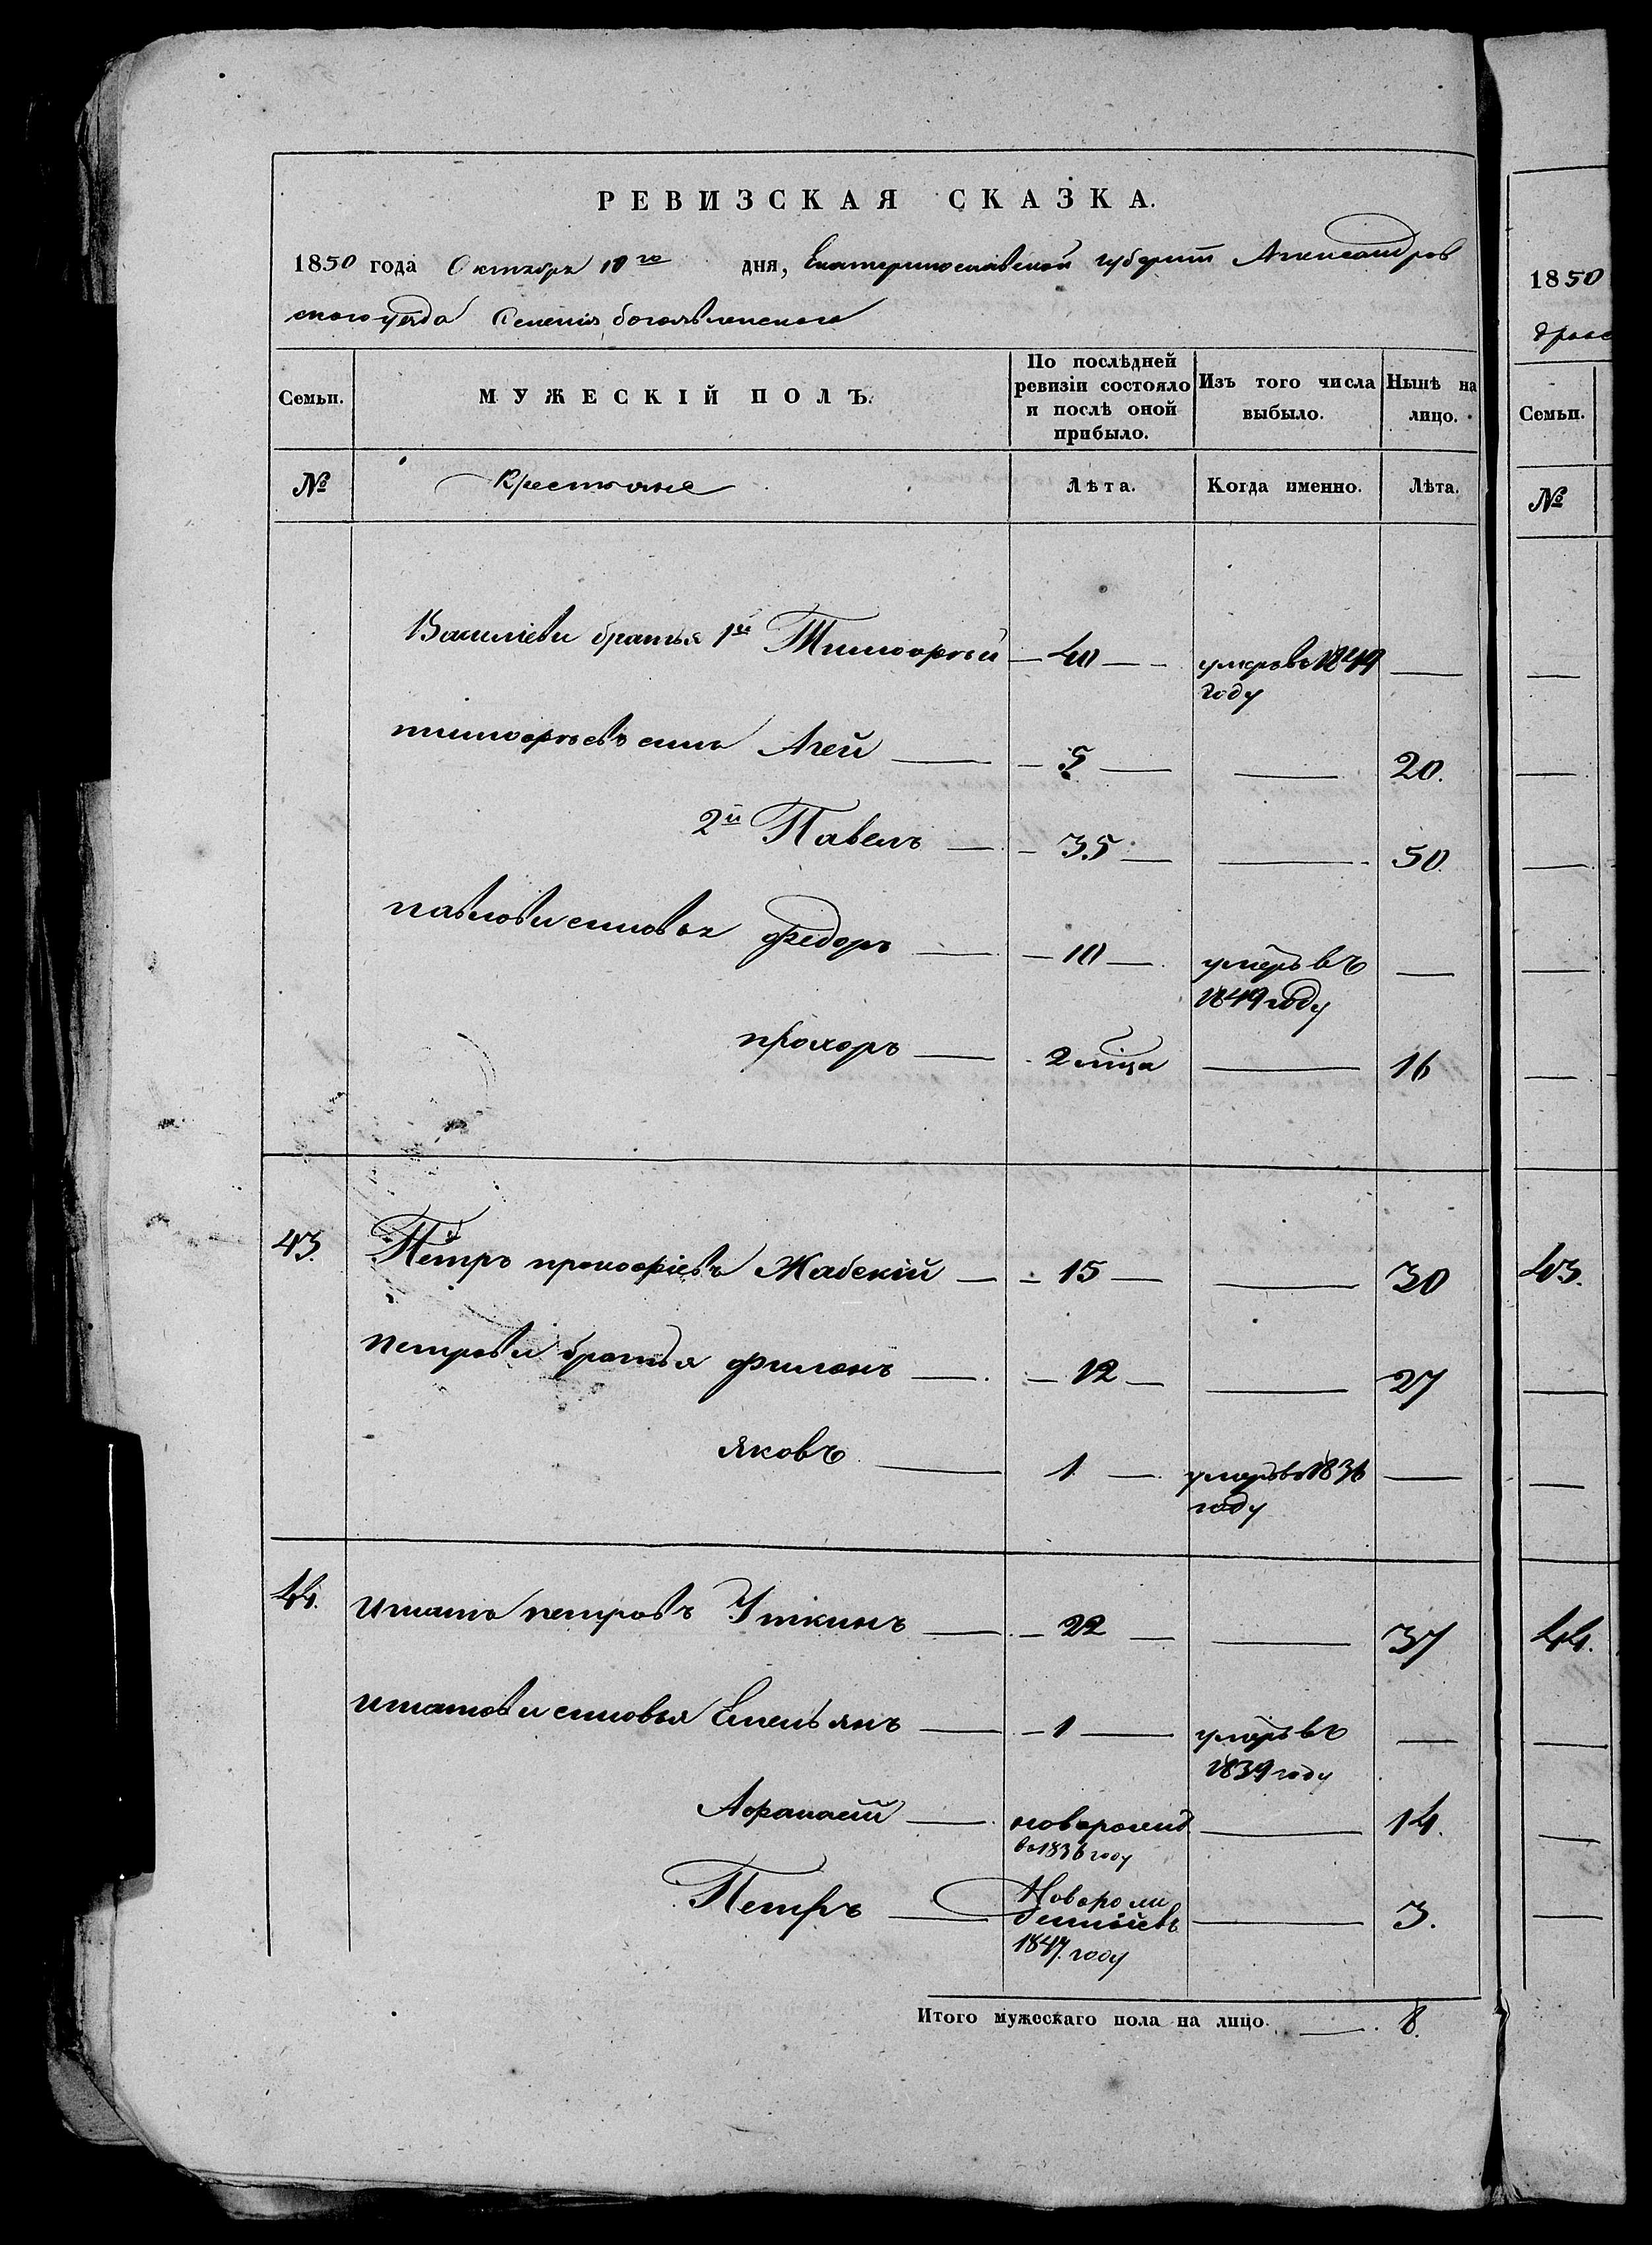 РЕВИЗСКАЯ СКАЗКА.
1850 года Октября 10го дня, Екатеринославской губернии Александров
ского уезда Селения богоявленского
Семьи. МУЖЕСКІЙ ПОЛЪ. По послѣдней ревизіи состояло и послѣ оной прибыло. Изъ того числа выбыло. Нынѣ на лицо.
№ Крестьяне Лѣта. Когда именно. Лѣта.
Василіеви братья 1й Тимофей — 40 — умеръ въ 1849 —
году
тимофеевъ синъ Агей — 5 — — 20.
2й Павелъ — 35 — — 50.
павлови синовья федоръ — 10 — умеръ въ —
1849 году
прохоръ — 2 міца — 16
43. Петръ прокофіевъ Жабскій — 15 — — 30
петрови братья филонъ — 12 — — 27
яковъ — 1 — умеръ въ 1836 —
году
44. игнатъ петровъ Уткинъ — 22 — — 37
игнатови синовья Емельянъ — 1 — умеръ въ —
1839 году
Афанасій — новорожд — 14.
въ 1836 году
Петръ — Новорож — 3.
денныйвъ
1847 году
Итого мужескаго пола на лицо. — 8.
1850
дров
Семьи.
№
43.
44.